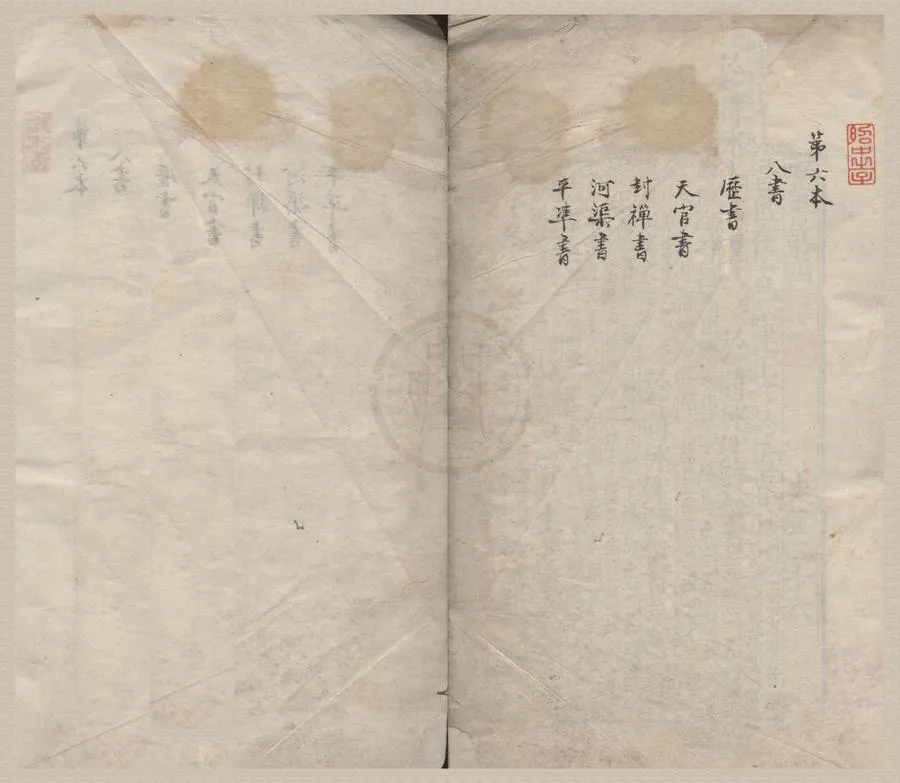 第六本
八書
歷書
天官書
封禪書
河渠書
平準書